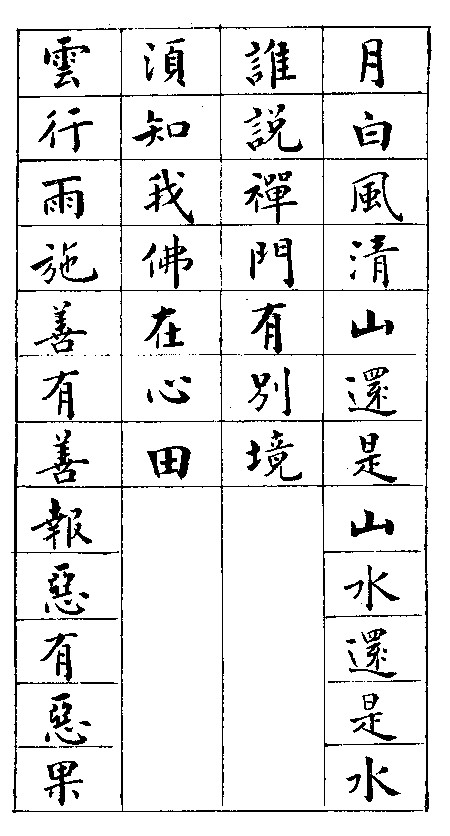 月白風清山還是山水還是水
誰説禪門有別境
須知我佛在心田
雲行雨施善有善報惡有惡果